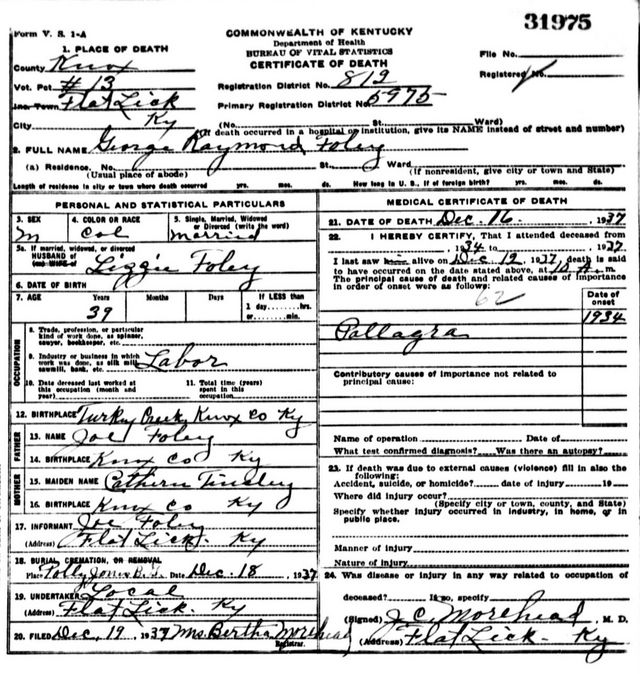 31975
Form V. S. 1-A
COMMONWEALTH OF KENTUCKY
Department of Health
BUREAU OF VITAL STATISTICS
CERTIFICATE OF DEATH
File No.
Registered No.
1. PLACE OF DEATH
County Knox
Vot. Pct # 13
Inc. Town Flat Lick
City Ky
Registration District No. 812
Primary Registration District No. 5975
(No. St. Ward)
(If death occurred in a hospital or institution, give its NAME instead of street and number)
2. FULL NAME George Raymond Foley
(a) Residence. No. St. Ward
(Usual place of abode) (If nonresident, give city or town and State)
Length of residence in city or town where death occurred yrs. mos. ds. How long in U. S., if of foreign birth? yrs. mos. ds.
PERSONAL AND STATISTICAL PARTICULARS
3. SEX M
4. COLOR OR RACE Col
5. Single, Married, Widowed or Divorced (write the word) Married
5a. If married, widowed, or divorced
HUSBAND of
(or) WIFE of Lizzie Foley
6. DATE OF BIRTH
7. AGE Years Months Days If LESS than
39 1 day......hrs.
or......min.
OCCUPATION
8. Trade, profession, or particular kind of work done, as spinner, sawyer, bookkeeper, etc.
9. Industry or business in which work was done, as silk mill, sawmill, bank, etc. Labor
10. Date deceased last worked at this occupation (month and year)
11. Total time (years) spent in this occupation
12. BIRTHPLACE Turkey Creek Knox Co Ky
FATHER
13. NAME Joe Foley
14. BIRTHPLACE Knox Co Ky
MOTHER
15. MAIDEN NAME Cathern Tinsley
16. BIRTHPLACE Knox Co Ky
17. INFORMANT Joe Foley
(Address) Flat Lick. Ky
18. BURIAL, CREMATION, OR REMOVAL
Place Date Dec. 18, 1937
19. UNDERTAKER Local
(Address) Flat Lick. Ky
20. FILED Dec, 19, 1937 Mrs. Bertha Morehead
Registrar.
MEDICAL CERTIFICATE OF DEATH
21. DATE OF DEATH Dec. 16, 1937
22. I HEREBY CERTIFY, That I attended deceased from
, 1934 to , 1937
I last saw him alive on Dec 12, 1937, death is said
to have occurred on the date stated above, at 10 A. m.
The principal cause of death and related causes of importance
in order of onset were as follows:
Date of onset
62
1934
Pallagra
Contributory causes of importance not related to
principal cause:
Name of operation Date of
What test confirmed diagnosis? Was there an autopsy?
23. If death was due to external causes (violence) fill in also the
following:
Accident, suicide, or homicide? date of injury 19
Where did injury occur?
(Specify city or town, county, and State)
Specify whether injury occurred in industry, in home, or in
public place.
Manner of injury
Nature of injury
24. Was disease or injury in any way related to occupation of
deceased? If so, specify
(Signed) J. C. Morehead, M. D.
(Address) Flat Lick - Ky